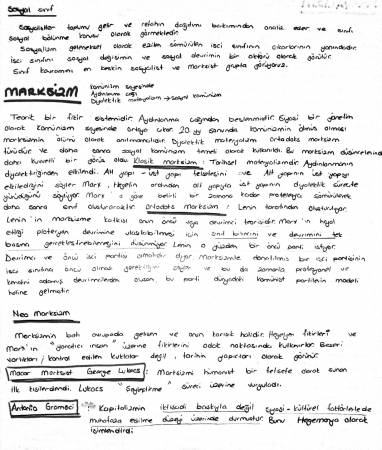 Sosyal sınıf
Sosyalistler toplumu gelir ve refahın dağılımı bakımından analiz eder ve sınıfı
sosyal bölünme konusu olarak görmektedir.
Sosyalizm geleneksel olarak ezilen sömürülen işçi sınıfının çıkarlarının yanındadır.
işçi sınıfını sosyal değişimin ve sosyal devrimin bir aktörü olarak görülür.
Sınıf kavramını en keskin sosyalist ve marksist grupta görüyoruz.
MARKSİZM
Komünizm sayesinde
Aydınlanma çağı
Diyalektik materyalizm → sovyet komünizm
Teorik bir fikir sistemidir. Aydınlanma çağından beslenmiştir. Siyasi bir yönetim
olarak komünizm sayesinde ortaya çıkar. 20 yy sonunda komünizmin ölmüş olması
marksizmin ölümü olarak anılmamalıdır. Diyalektik materyalizm ortodoks marksizm
türüdür ve daha sonra sovyet komünizm temeli olarak kullanıldı. Bu marksizm düşüncelerinde
daha kuvvetli bir görüş olay Klasik marksizm: Tarihsel materyalizmdir. Aydınlanmanın
diyalektiğinden etkilendi. Alt yapı - üst yapı felsefesini ve Alt yapının üst yapıyı
etkilediğini söyler Marx, Hegelin ardından alt yapıyla üst yapının diyalektik süreçte
yürüdüğünü söylüyor. Marx'a göre belirli bir zamana kadar proletarya sömürülenek
daha sonra sınıf oluşturacaktır. Ortodoks marksizm: Lenin tarafından oluşturuluyor.
Lenin'in marksizme katkısı onun öncü veya devrimci teorisidir. Marx'ın hayal
ettiği proleteryan devrimine ulaşılabilmesi için sınıf bilincini ve devrimini tek
başına gerçekleştirebileceğini düşünmüyor. Lenin o yüzden bir öncü parti istiyor.
Devrimci ve öncü işçi partisi olmalıdır diğer Marksizmle donatılmış bir işçi partisinin
işçi sınıfına öncü olması gerektiğini söyler ve bu da zamanla profesyonel ve
kendini adamış devrimcilerden oluşan bu parti dünyadaki komünist partilerin modeli
haline gelmiştir.
Neo marksizm
Marksizmin batı avrupada gelişen ve onun karışık halidir. Hegelyan fikirleri ve
Marx'ın "yaratıcı insan" üzerine fikirlerini odak noktasında bulunurlar. Beşeri
varlıkları / kontrol edilen kuklalar değil, tarihin yapıcıları olarak görünür.
Macar Marksist George Lukacs: Marksizmi hümanist bir felsefe olarak sunan
ilk kişilerdendi. Lukacs "Şeyleştirme" süreci üzerine vurguladı.
Antonio Gramsci Kapitalizmin iktisadi baskıyla değil siyasi - kültürel faktörlerle de
muhafaza edilme düzeyi üzerinde durmuştur. Bunu Hegemonya olarak
isimlendirdi